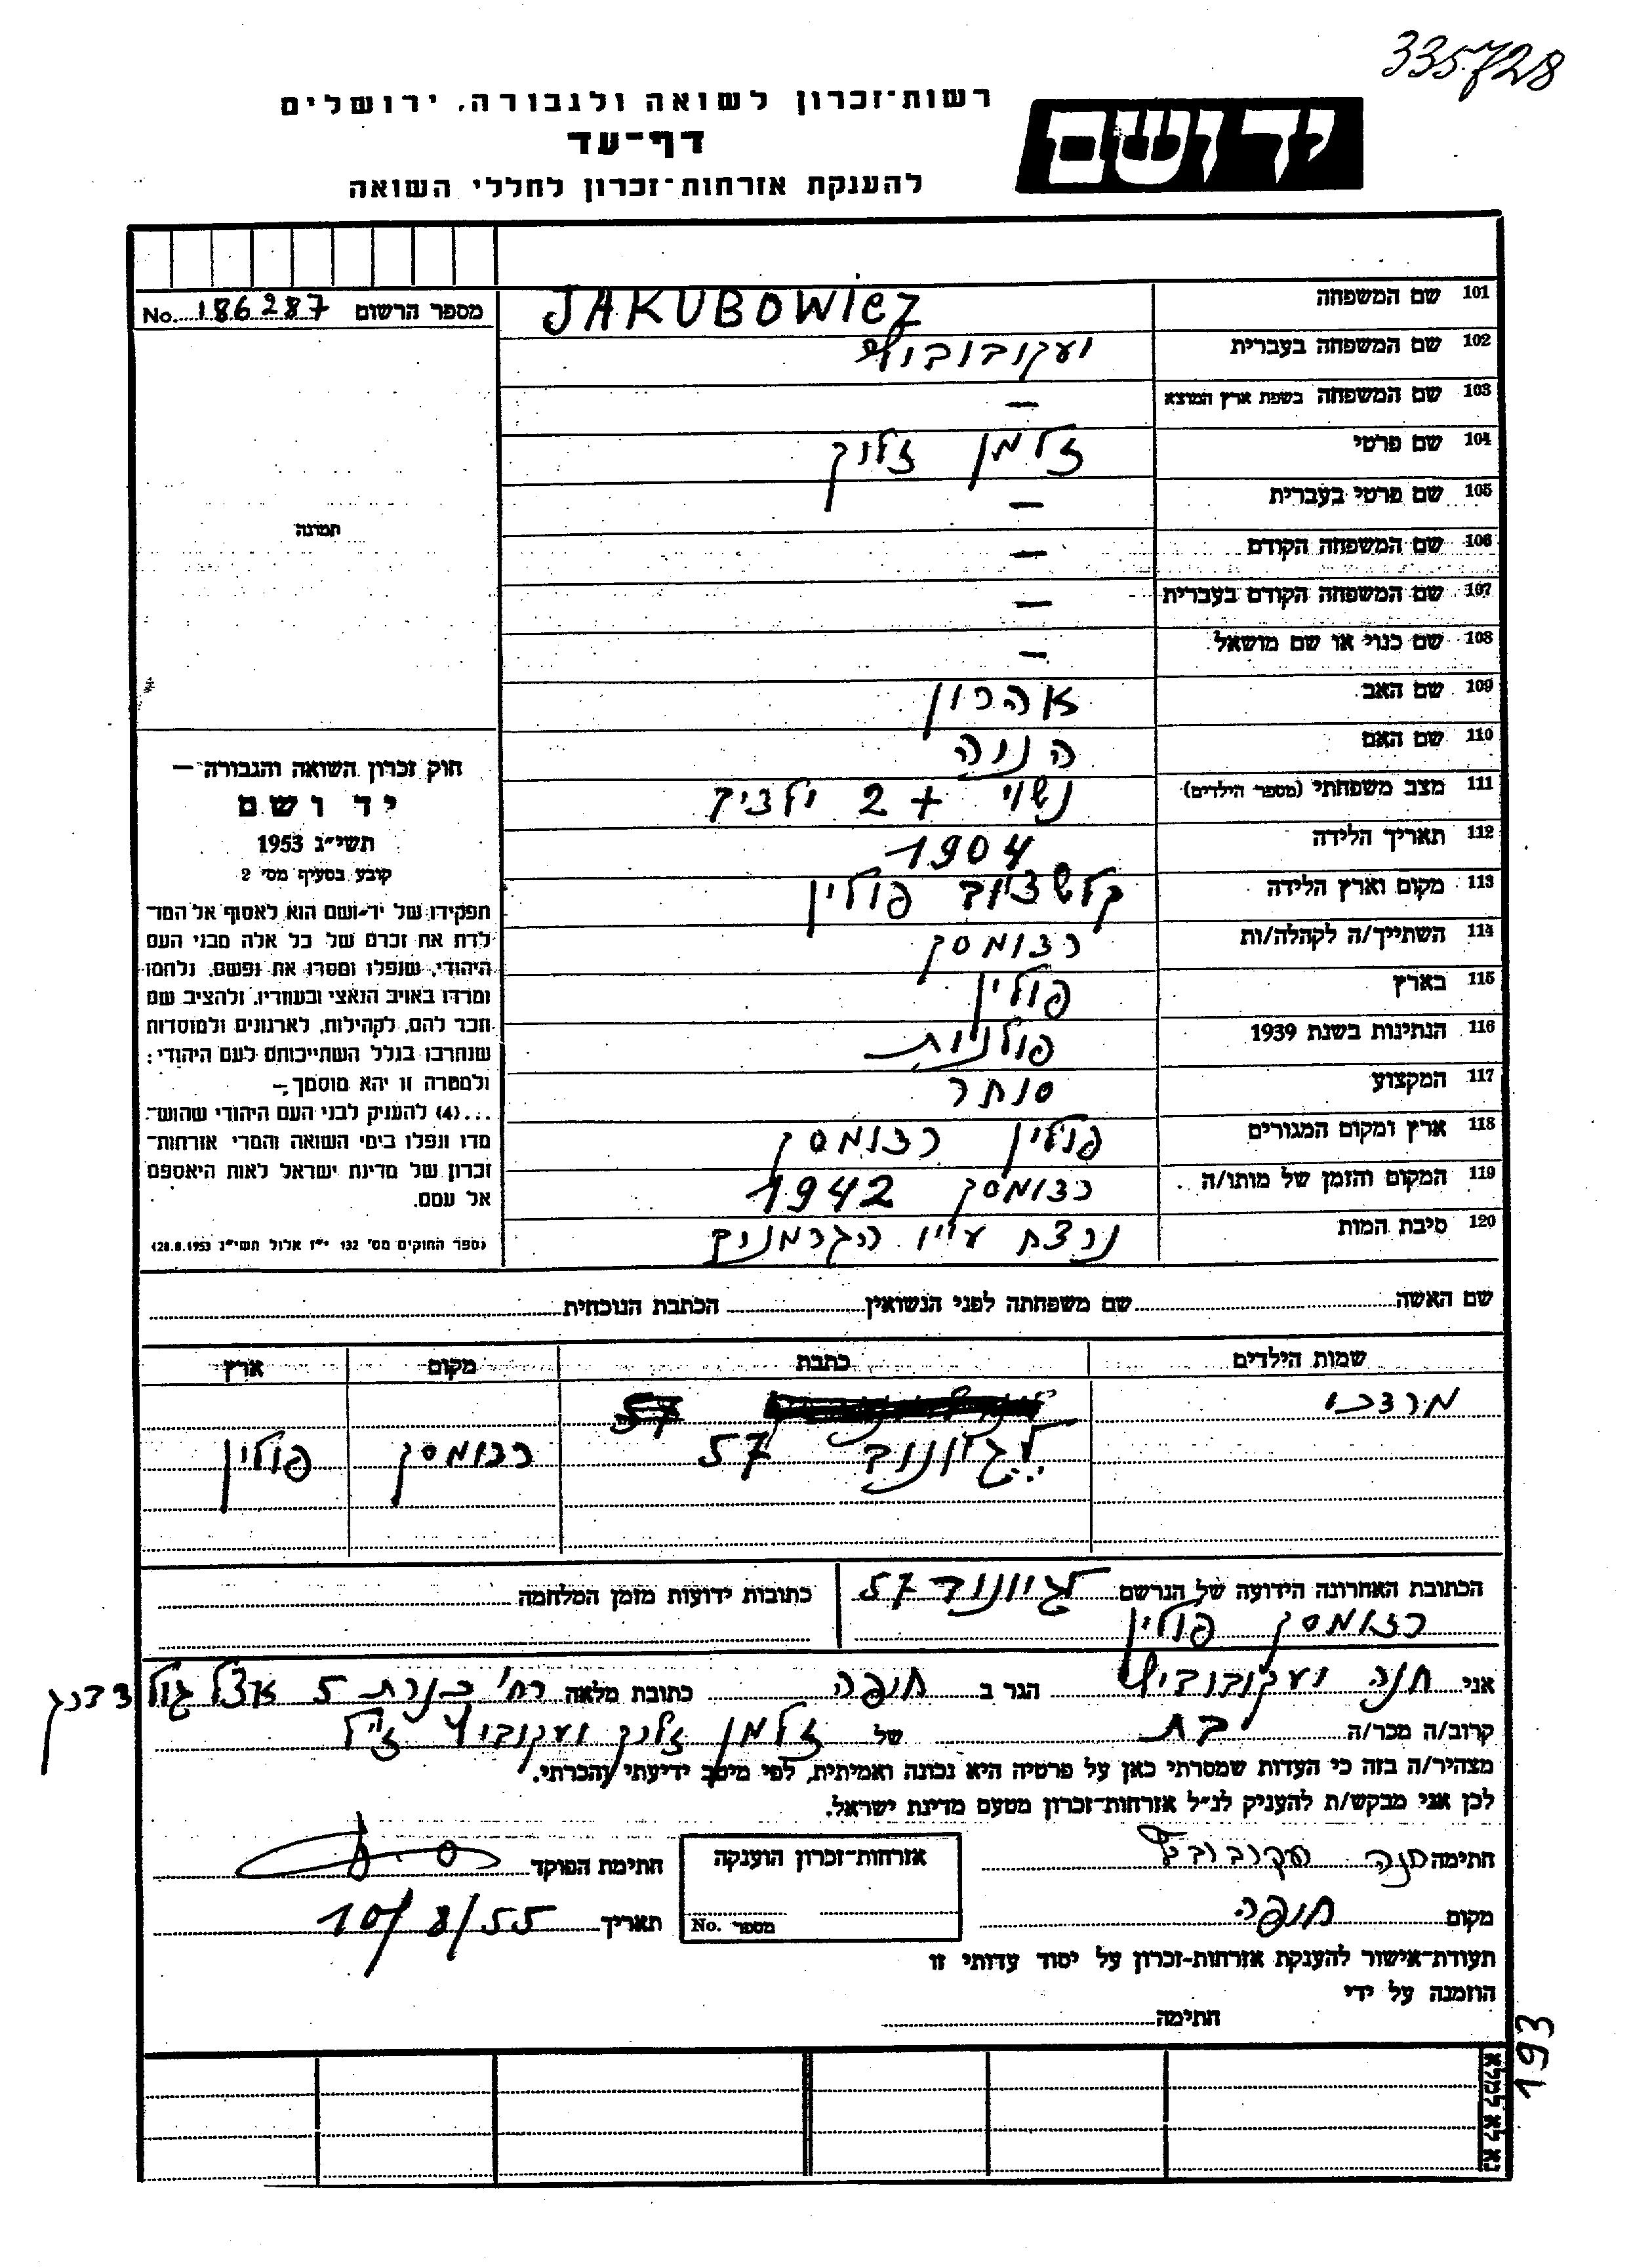 335728
רשות־זכרון לשואה ולגבורה, ירושלים
יד ושם
דף־עד
להענקת אזרחות־זכרון לחללי השואה
101 שם המשפחה JAKUBOWicz
מספר הרשום No. 186287
102 שם המשפחה בעברית יעקובוביץ
103 שם המשפחה בשפת ארץ המוצא —
104 שם פרטי זלמן זלוק
105 שם פרטי בעברית —
106 שם המשפחה הקודם —
107 שם המשפחה הקודם בעברית —
108 שם כנוי או שם מושאל —
תמונה
109 שם האב אהרון
110 שם האם הנה
111 מצב משפחתי (מספר הילדים) נשוי + 2 ילדים
112 תאריך הלידה 1904
113 מקום וארץ הלידה פולין
114 השתייך/ה לקהלה/ות רדומסק
115 בארץ פולין
116 הנתינות בשנת 1939 פולנית
117 המקצוע סוחר
118 ארץ ומקום המגורים פולין רדומסק
119 המקום והזמן של מותו/ה רדומסק 1942
120 סיבת המות נרצח ע״י הגרמנים
חוק זכרון השואה והגבורה —
יד ושם
תשי״ג 1953
קובע בסעיף מס׳ 2
תפקידו של יד־ושם הוא לאסוף אל המו־
לדת את זכרם של כל אלה מבני העם
היהודי, שנפלו ומסרו את נפשם, נלחמו
ומרדו באויב הנאצי ובעוזריו, ולהציב שם
וזכר להם, לקהילות, לארגונים ולמוסדות
שנחרבו בגלל השתייכותם לעם היהודי;
ולמטרה זו יהא מוסמך,—
...(4) להעניק לבני העם היהודי שהוש־
מדו ונפלו בימי השואה והמרי אזרחות־
זכרון של מדינת ישראל לאות היאספם
אל עמם.
(ספר החוקים מס׳ 132 י״ז אלול תשי״ג 28.8.1953)
שם האשה שם משפחתה לפני הנשואין הכתבת הנוכחית
שמות הילדים כתבת מקום ארץ
מרדכי 57
לגיונוב 57 רדומסק פולין
הכתובת האחרונה הידועה של הנרשם לגיונוב 57
רדומסק פולין
כתובות ידועות מזמן המלחמה
אני חנה יעקובוביץ הגר ב חיפה כתובת מלאה רח׳ כנרת 5 אצל
קרוב/ה מכר/ה בת של זלמן זלוק יעקובוביץ ז״ל
מצהיר/ה בזה כי העדות שמסרתי כאן על פרטיה היא נכונה ואמיתית, לפי מיטב ידיעתי והכרתי.
לכן אני מבקש/ת להעניק לנ״ל אזרחות־זכרון מטעם מדינת ישראל.
חתימה חנה יעקובוביץ
אזרחות־זכרון הוענקה
חתימת הפוקד
מקום חיפה
מספר No.
תאריך 10/8/55
תעודת־אישור להענקת אזרחות־זכרון על יסוד עדותי זו
הוזמנה על ידי
חתימה
193
נא לא למלא